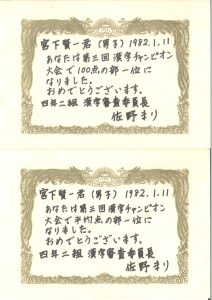 宮下賢一君(男子) 1982.1.11
あなたは第三回漢字チャンピオン
大会で100点の部一位に
なりました。
おめでとうございます。
四年二組 漢字審査委員長
佐野まり
宮下賢一君(男子) 1982.1.11
あなたは第三回漢字チャンピオン
大会で平均点の部一位に
なりました。
おめでとうございます。
四年二組 漢字審査委員長
佐野まり